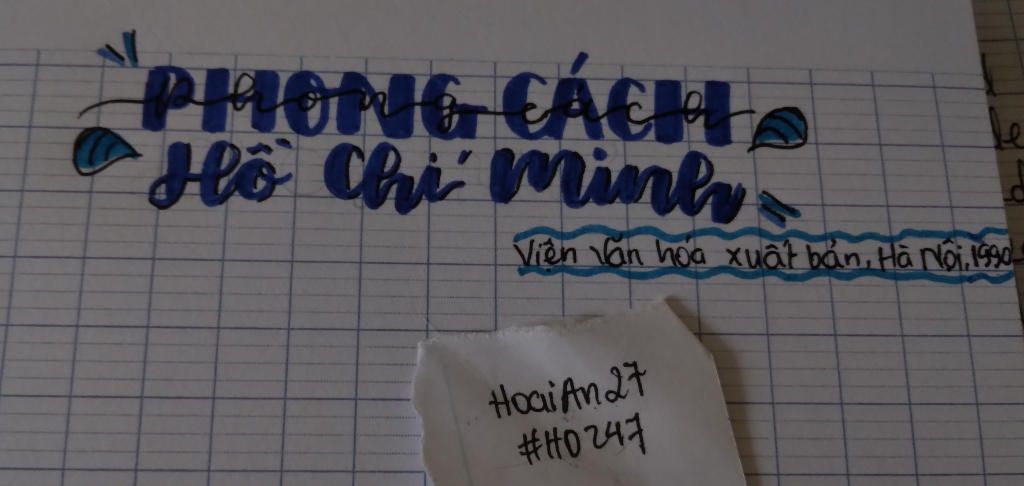 PHONG CÁCH
phong cách
Hồ Chí Minh
Viện văn hóa xuất bản, Hà Nội, 1990
HoaiAn27
#H0247